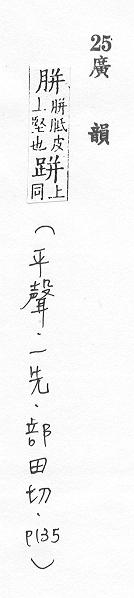 25廣韻
胼胼胝皮上堅也跰上同（平聲．一先．部田切．p135）